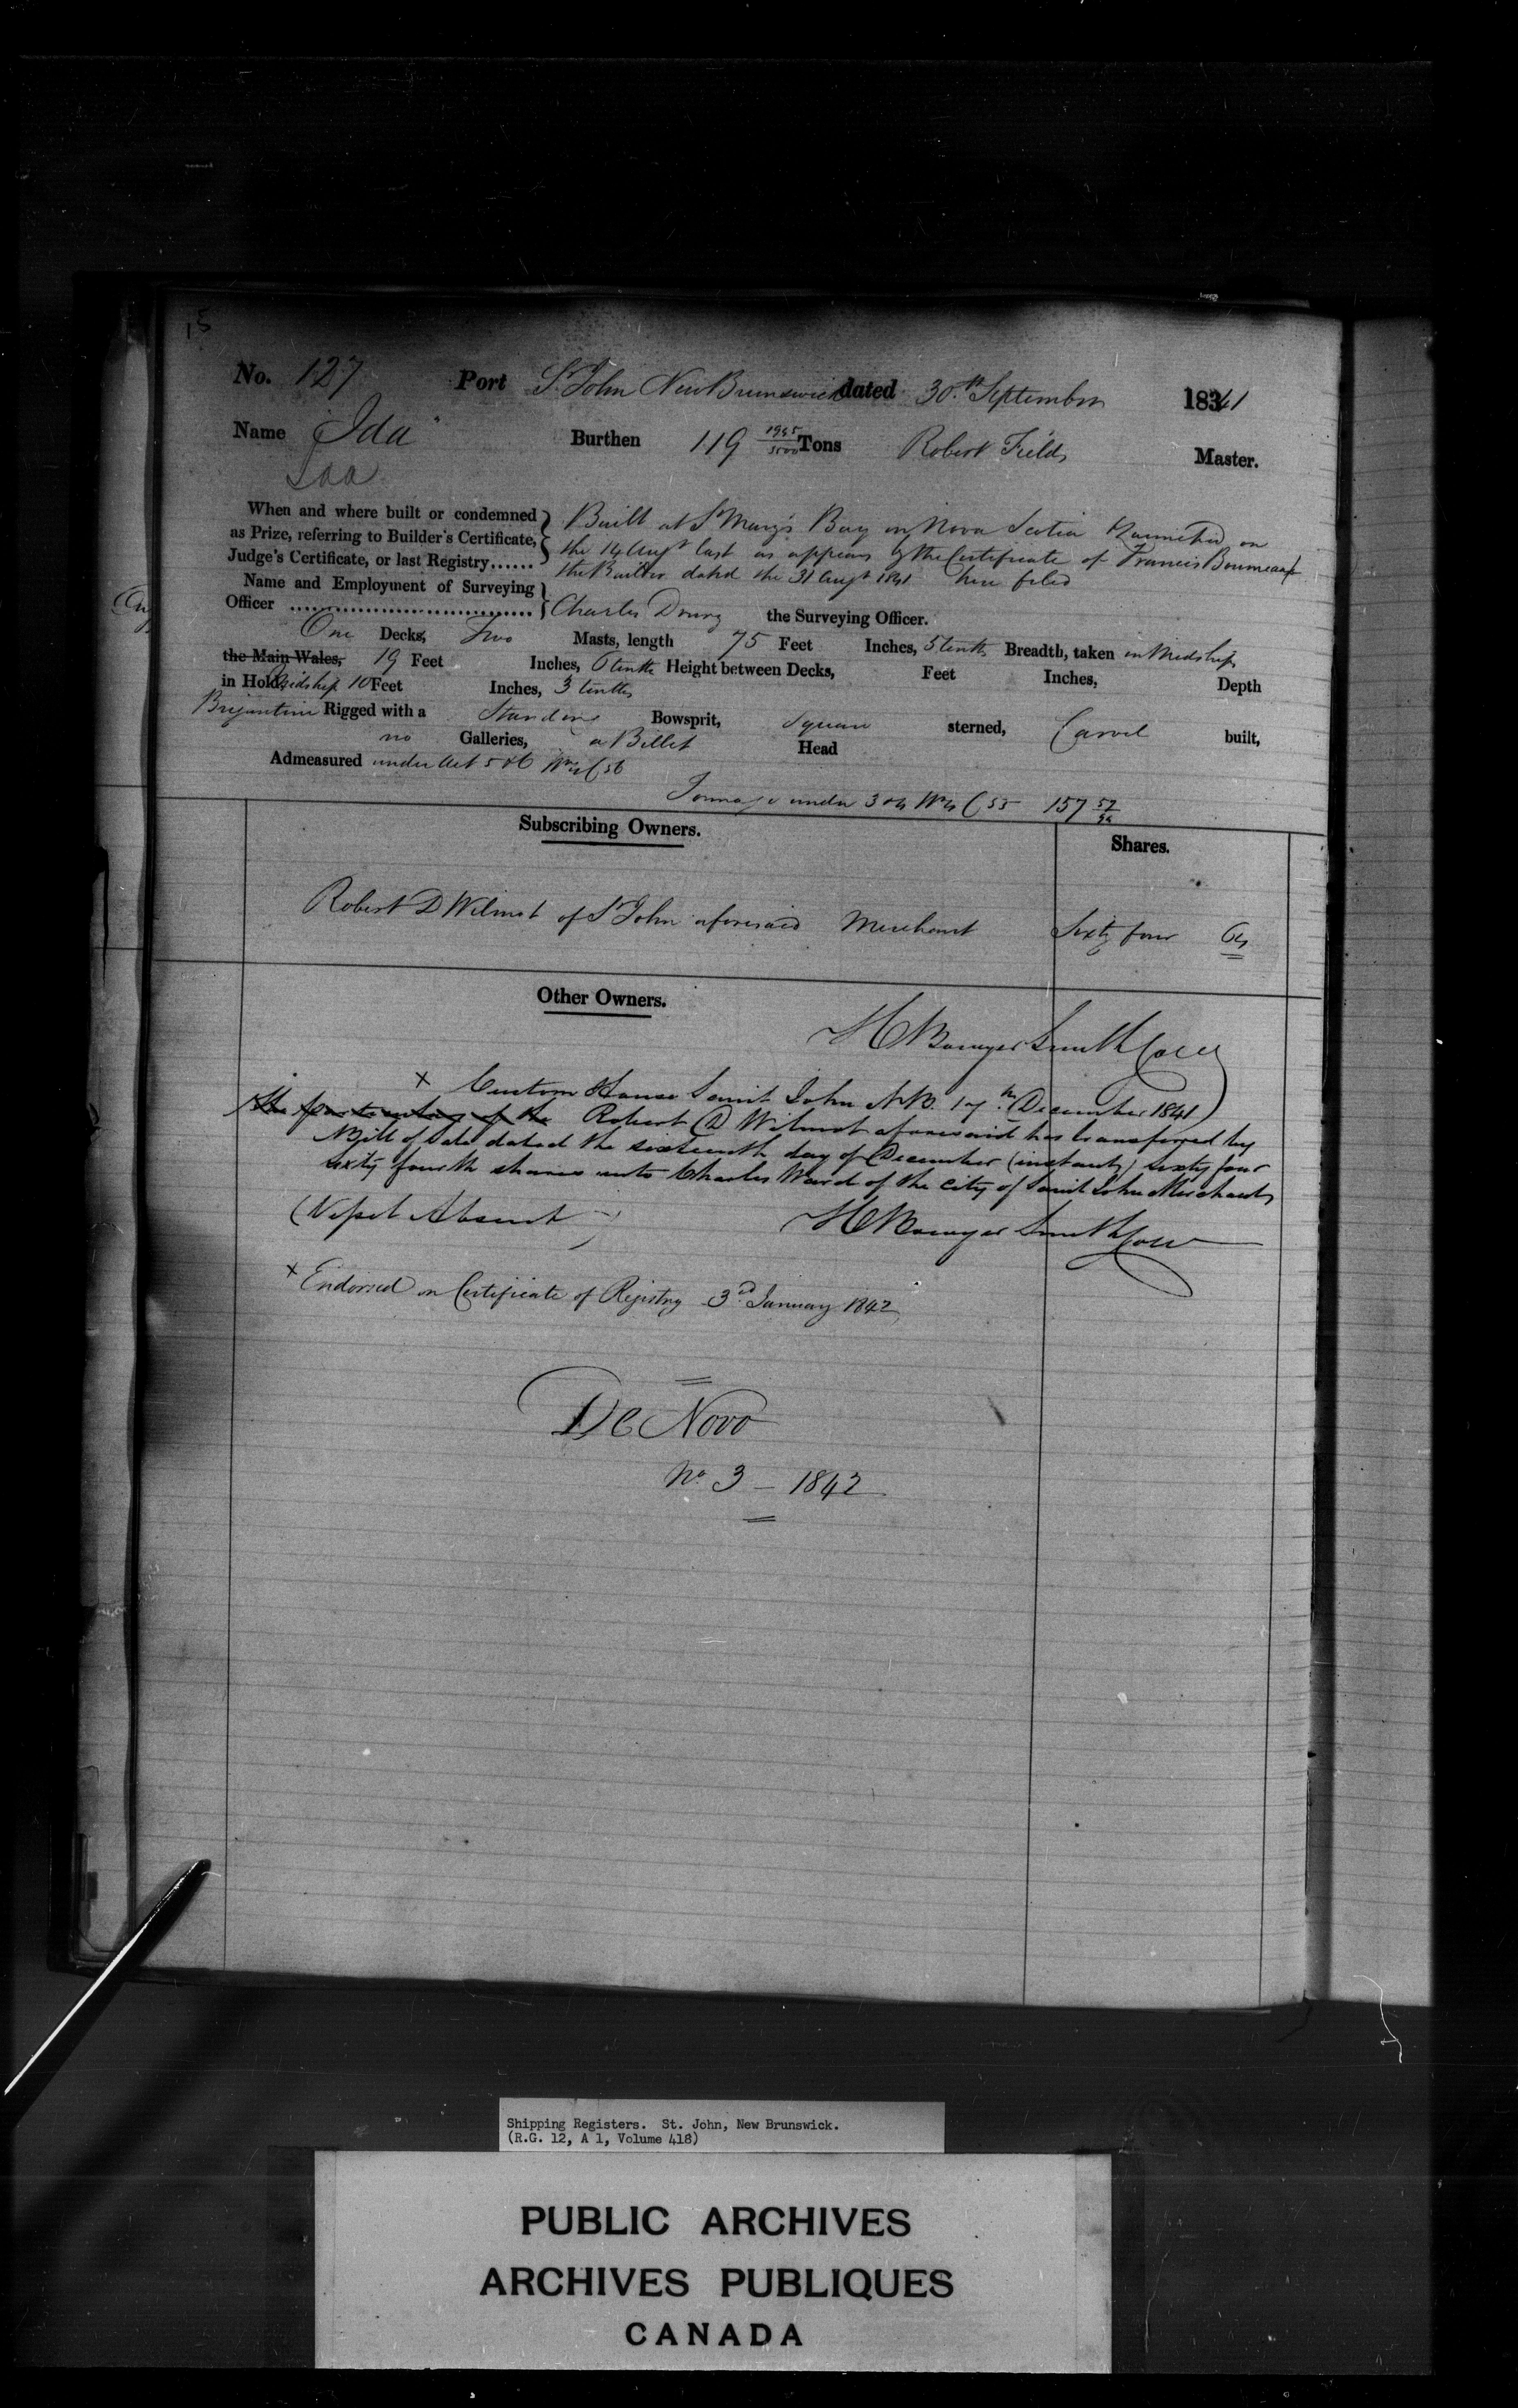 15
No. 127 Port St John New Brunswick dated 30th September 1841
Name "Ida" Burthen 119 1945/3500 Tons Robert Fields Master.
Ida
When and where built or condemned as Prize, referring to Builder's Certificate, Judge's Certificate, or last Registry......
Built at St Mary's Bay in Nova Scotia Launched on
the 14 Augt last as appears by the Certificate of Francis
the Builder dated the 31 Augt 1841 here filed
Name and Employment of Surveying
Officer Charles Drury the Surveying Officer.
One Decks, Two Masts, length 75 Feet Inches, 5 tenths Breadth, taken in Midships
the Main Wales, 19 Feet Inches, 6 tenths Height between Decks, Feet Inches, Depth
in Hold, Midship 10 Feet Inches, 3 tenths
Brigantine Rigged with a Standing Bowsprit, Square sterned, Carvel built,
no Galleries, a Billet Head
Admeasured under Act 5 & 6 Wm 4 C 56
Tonnage under 3 & 4 Wm 4 C 55 157 57/94
Subscribing Owners. Shares.
Robert D Wilmot of St John aforesaid Merchant Sixty four 64
Other Owners.
H Bowyer Smith Coll
x Custom House Saint John N.B. 17th December 1841
the Robert D Wilmot aforesaid has transferred by
Bill of Sale dated the sixteenth day of December (instant) sixty four
sixty fourth shares unto Charles Ward of the City of Saint John Merchant
(Vessel Absent) H Bowyer Smith Coll
x Endorsed on Certificate of Registry 3rd January 1842
De Novo
No 3 - 1842
Shipping Registers. St. John, New Brunswick.
(R.G. 12, A 1, Volume 418)
PUBLIC ARCHIVES
ARCHIVES PUBLIQUES
CANADA